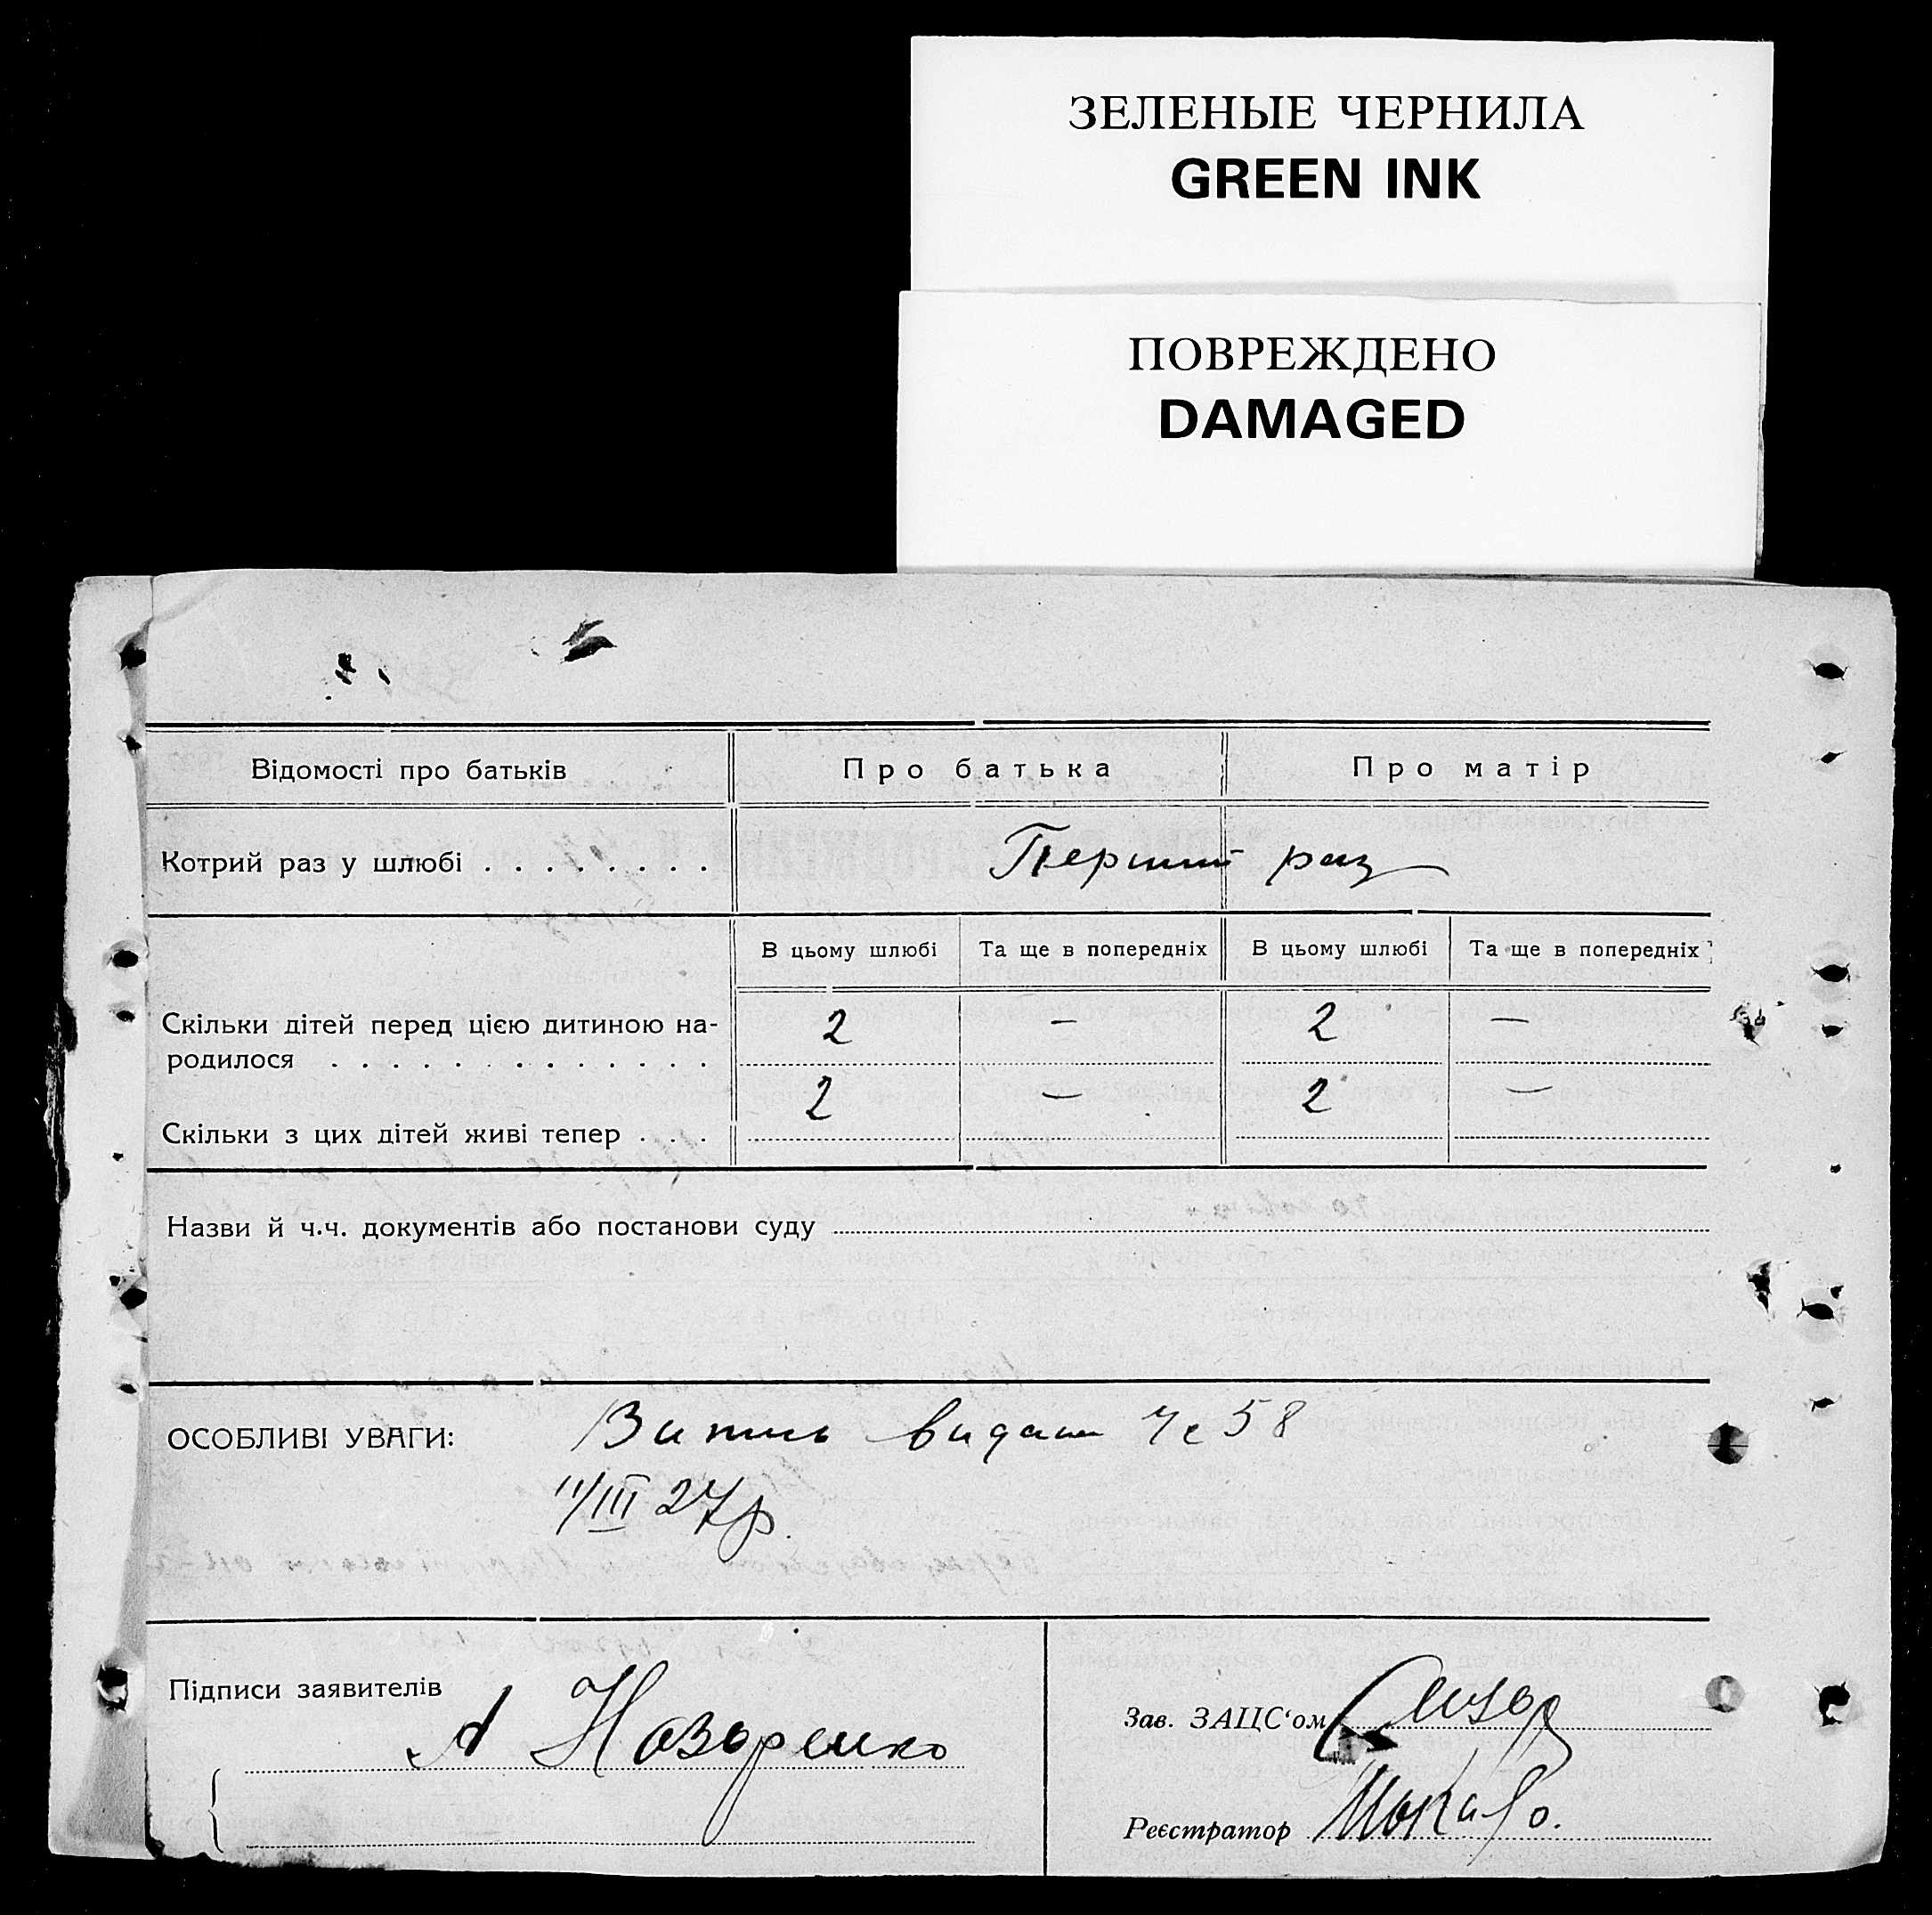 ЗЕЛЕНЫЕ ЧЕРНИЛА
GREEN INK
ПОВРЕЖДЕНО
DAMAGED
Відомості про батьків Про батька Про матір
Котрий раз у шлюбі . . . . . . . . Перший раз
В цьому шлюбі Та ще в попередніх В цьому шлюбі Та ще в попередніх
Скільки дітей перед цією дитиною на- 2 — 2 —
родилося . . . . . . . . . . . . .
Скільки з цих дітей живі тепер . . . 2 — 2 —
Назви й ч.ч. документів або постанови суду
ОСОБЛИВІ УВАГИ: Витяг видан 58
11/III 27р.
Підписи заявителів
А Назаренко
Зав. ЗАЦС‘ом
Реєстратор